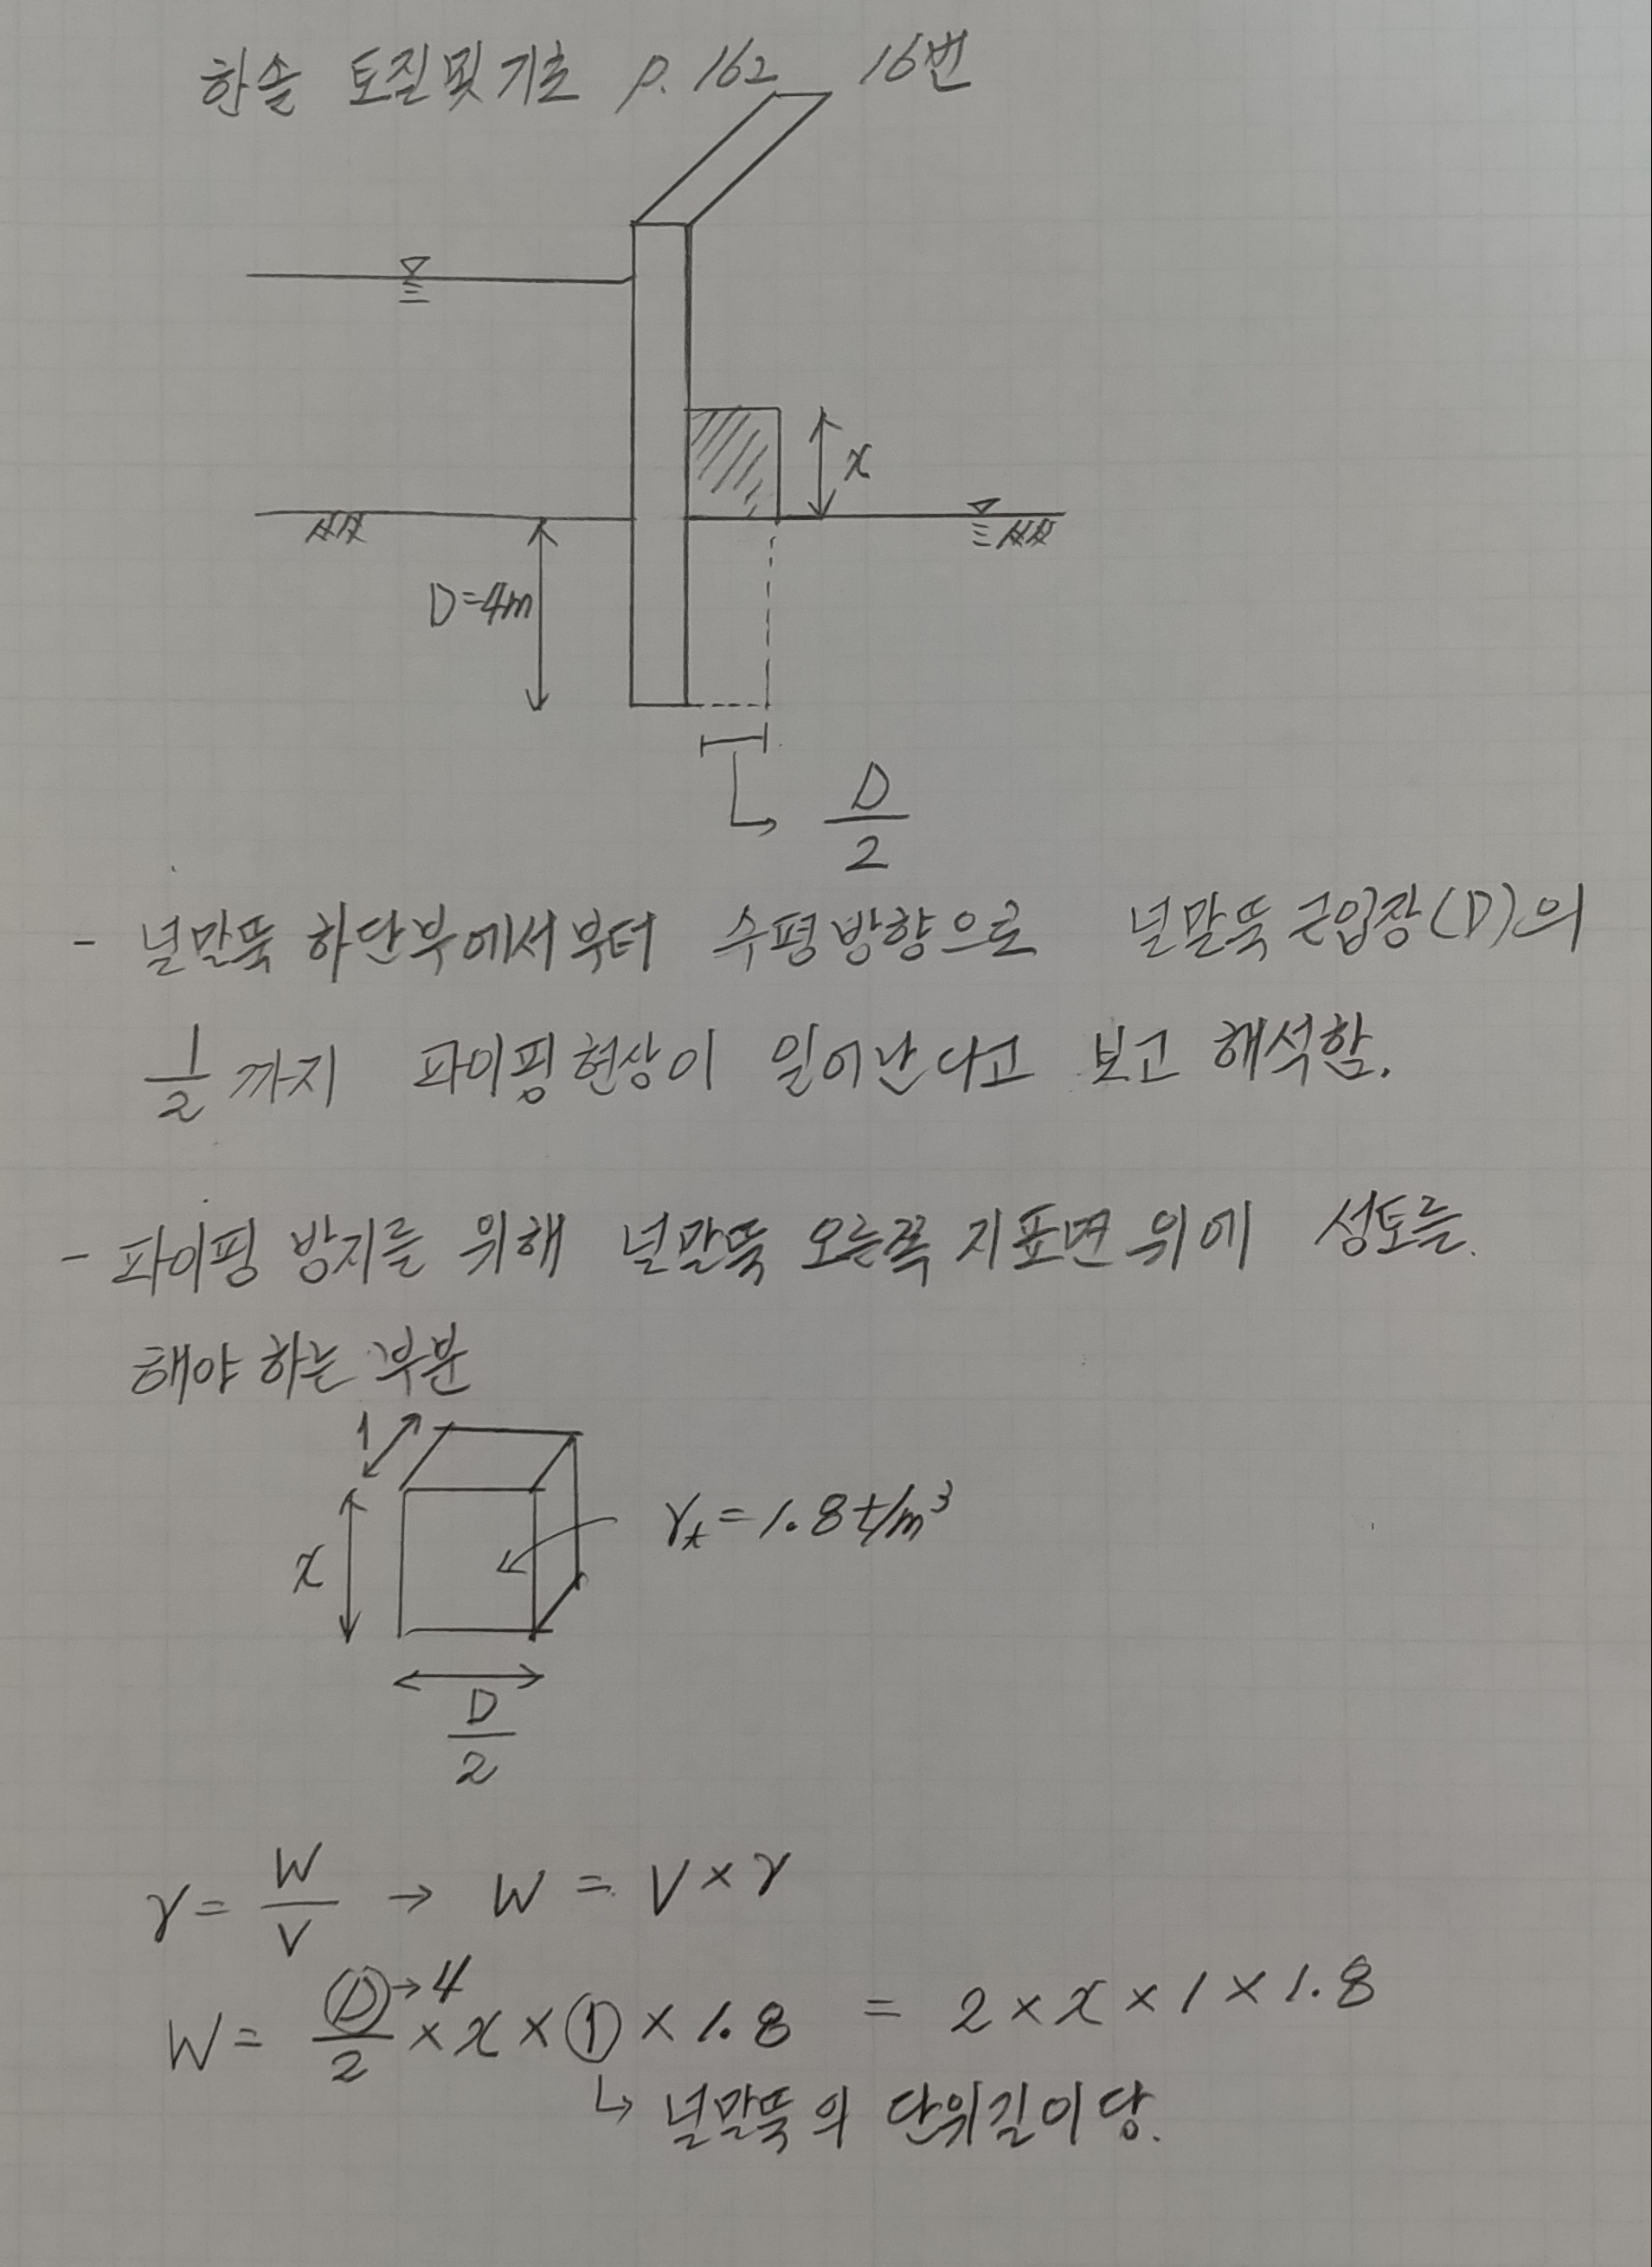 한솔 토질및기초 p.162 16번
x
D=4m
D/2
- 널말뚝 하단부에서부터 수평방향으로 널말뚝 근입장(D)의
1/2 까지 파이핑현상이 일어난다고 보고 해석함.
- 파이핑 방지를 위해 널말뚝 오른쪽 지표면 위에 성토를
해야 하는 부분
1
x
γt=1.8t/m³
D/2
γ = W/V → W = V×γ
W = D/2 × x × 1 × 1.8 = 2×x×1×1.8
→4
↳ 널말뚝의 단위길이당.